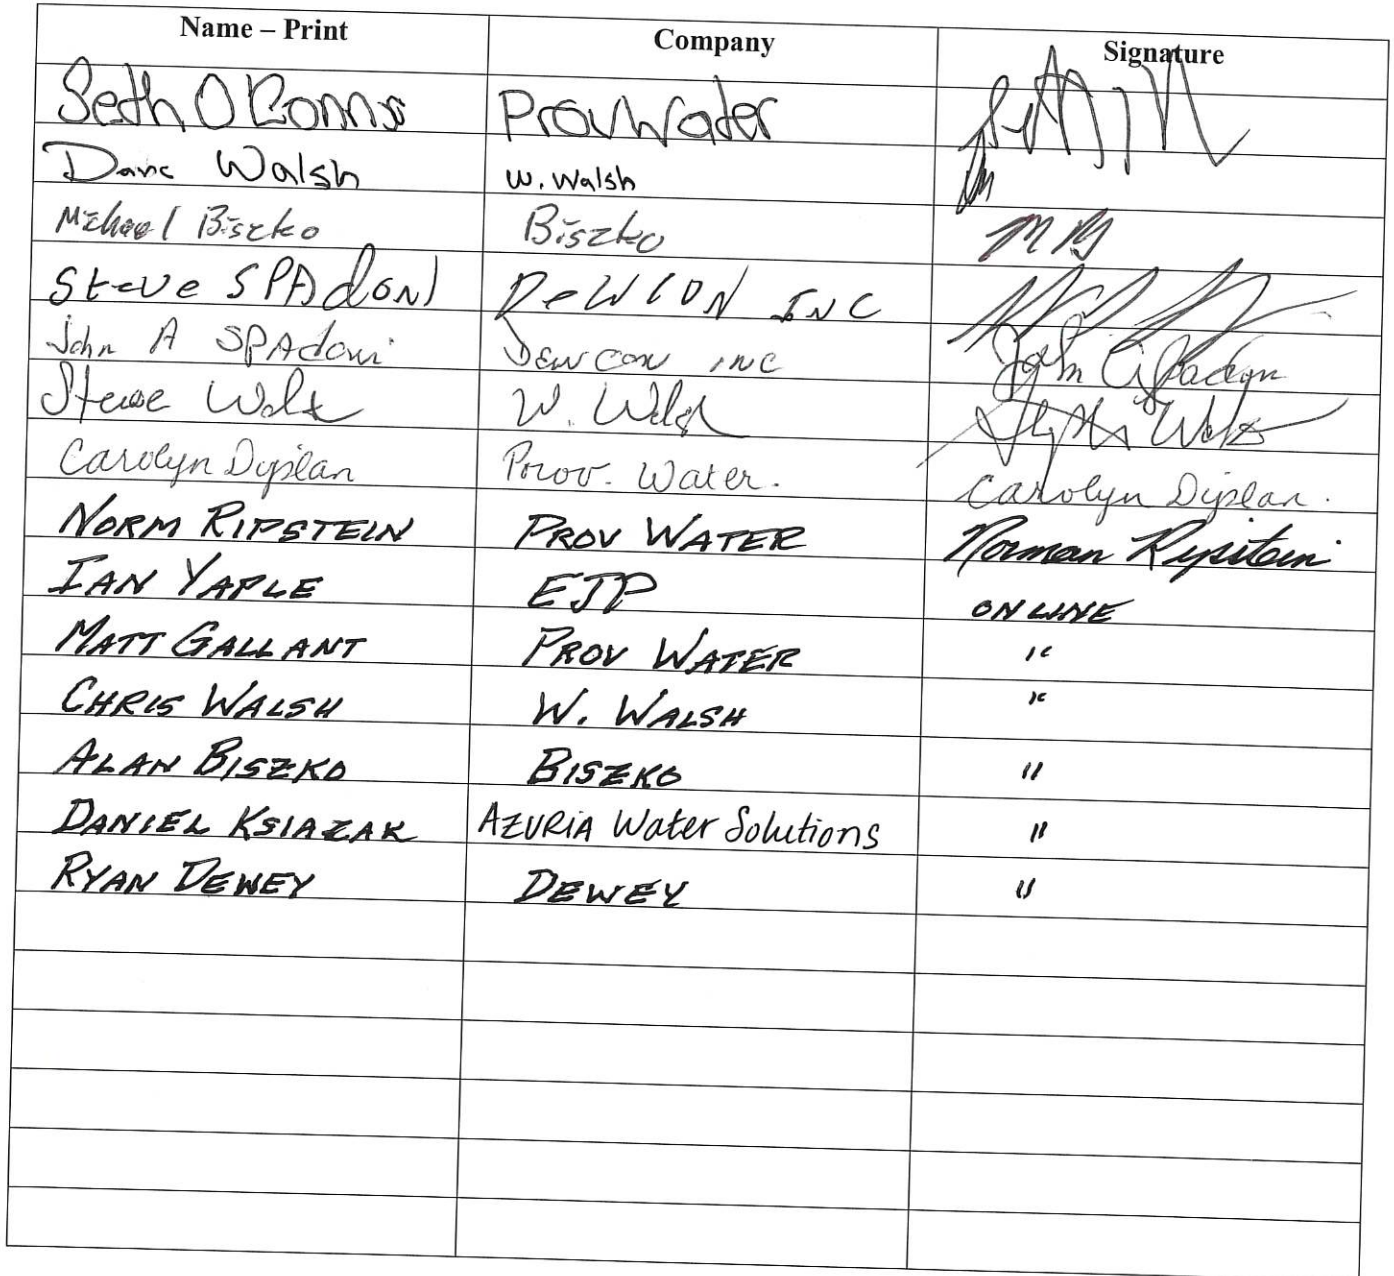 Name – Print Company Signature
Seth O Prov Water
Walsh W. Walsh
Michael Biszko Biszko MB
Steve SPAdoNI DeWCON INC
John A SPAdoni Dewcon INC John A Spadoni
Steve W. Walsh
Carolyn Dyslan Prov. Water. Carolyn Dyslan.
NORM RIPSTEIN PROV WATER Norman Ripstein
IAN YAPLE EJP ONLINE
MATT GALLANT PROV WATER "
CHRIS WALSH W. WALSH "
ALAN BISZKO BISZKO "
DANIEL KSIAZAK AZURIA Water Solutions "
RYAN DEWEY DEWEY "